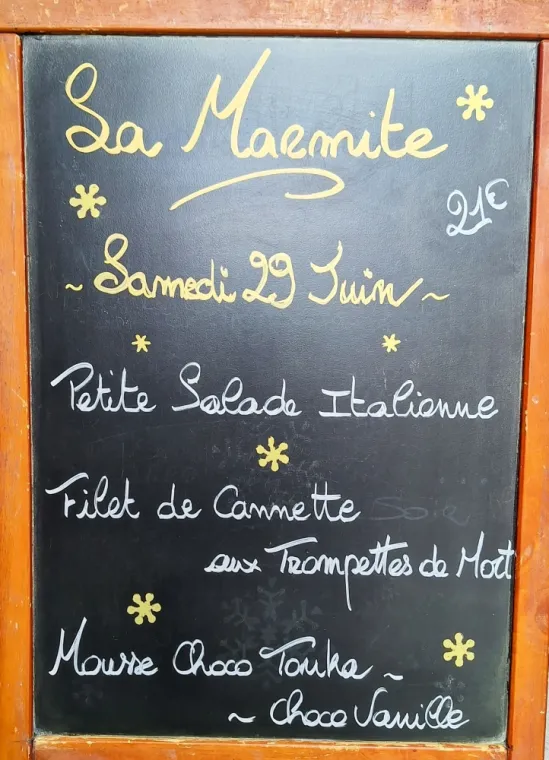 La Marmite
21€
~ Samedi 29 Juin ~
Petite Salade Italienne
Filet de Cannette
aux Trompettes de Mort
Mousse Choco Tonka ~
~ Choco Vanille